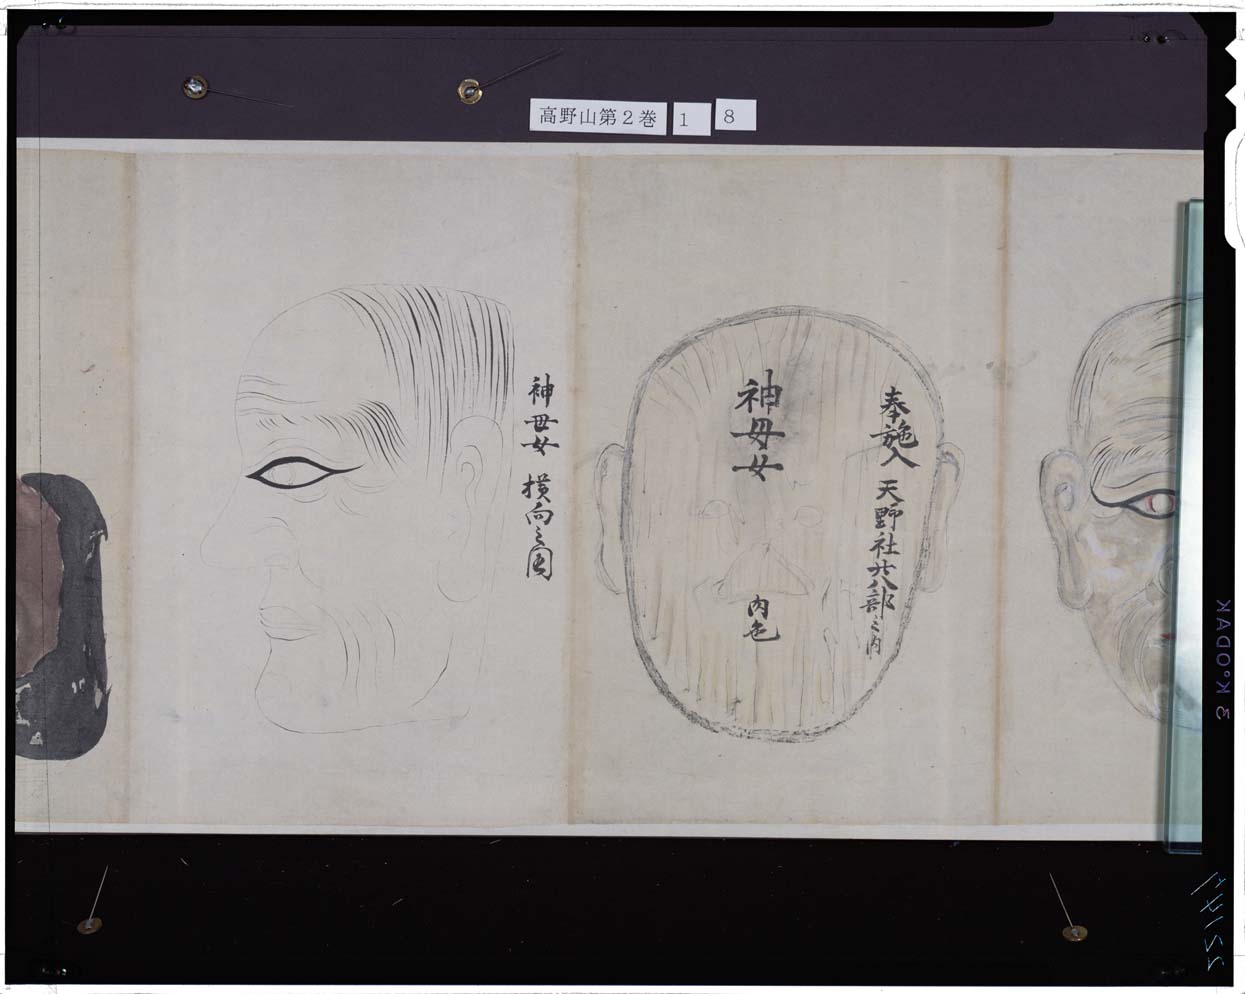 高野山第2巻 1 8
奉施入 天野社廿八部之内
神母女
内色
神母女 横向之図
KODAK